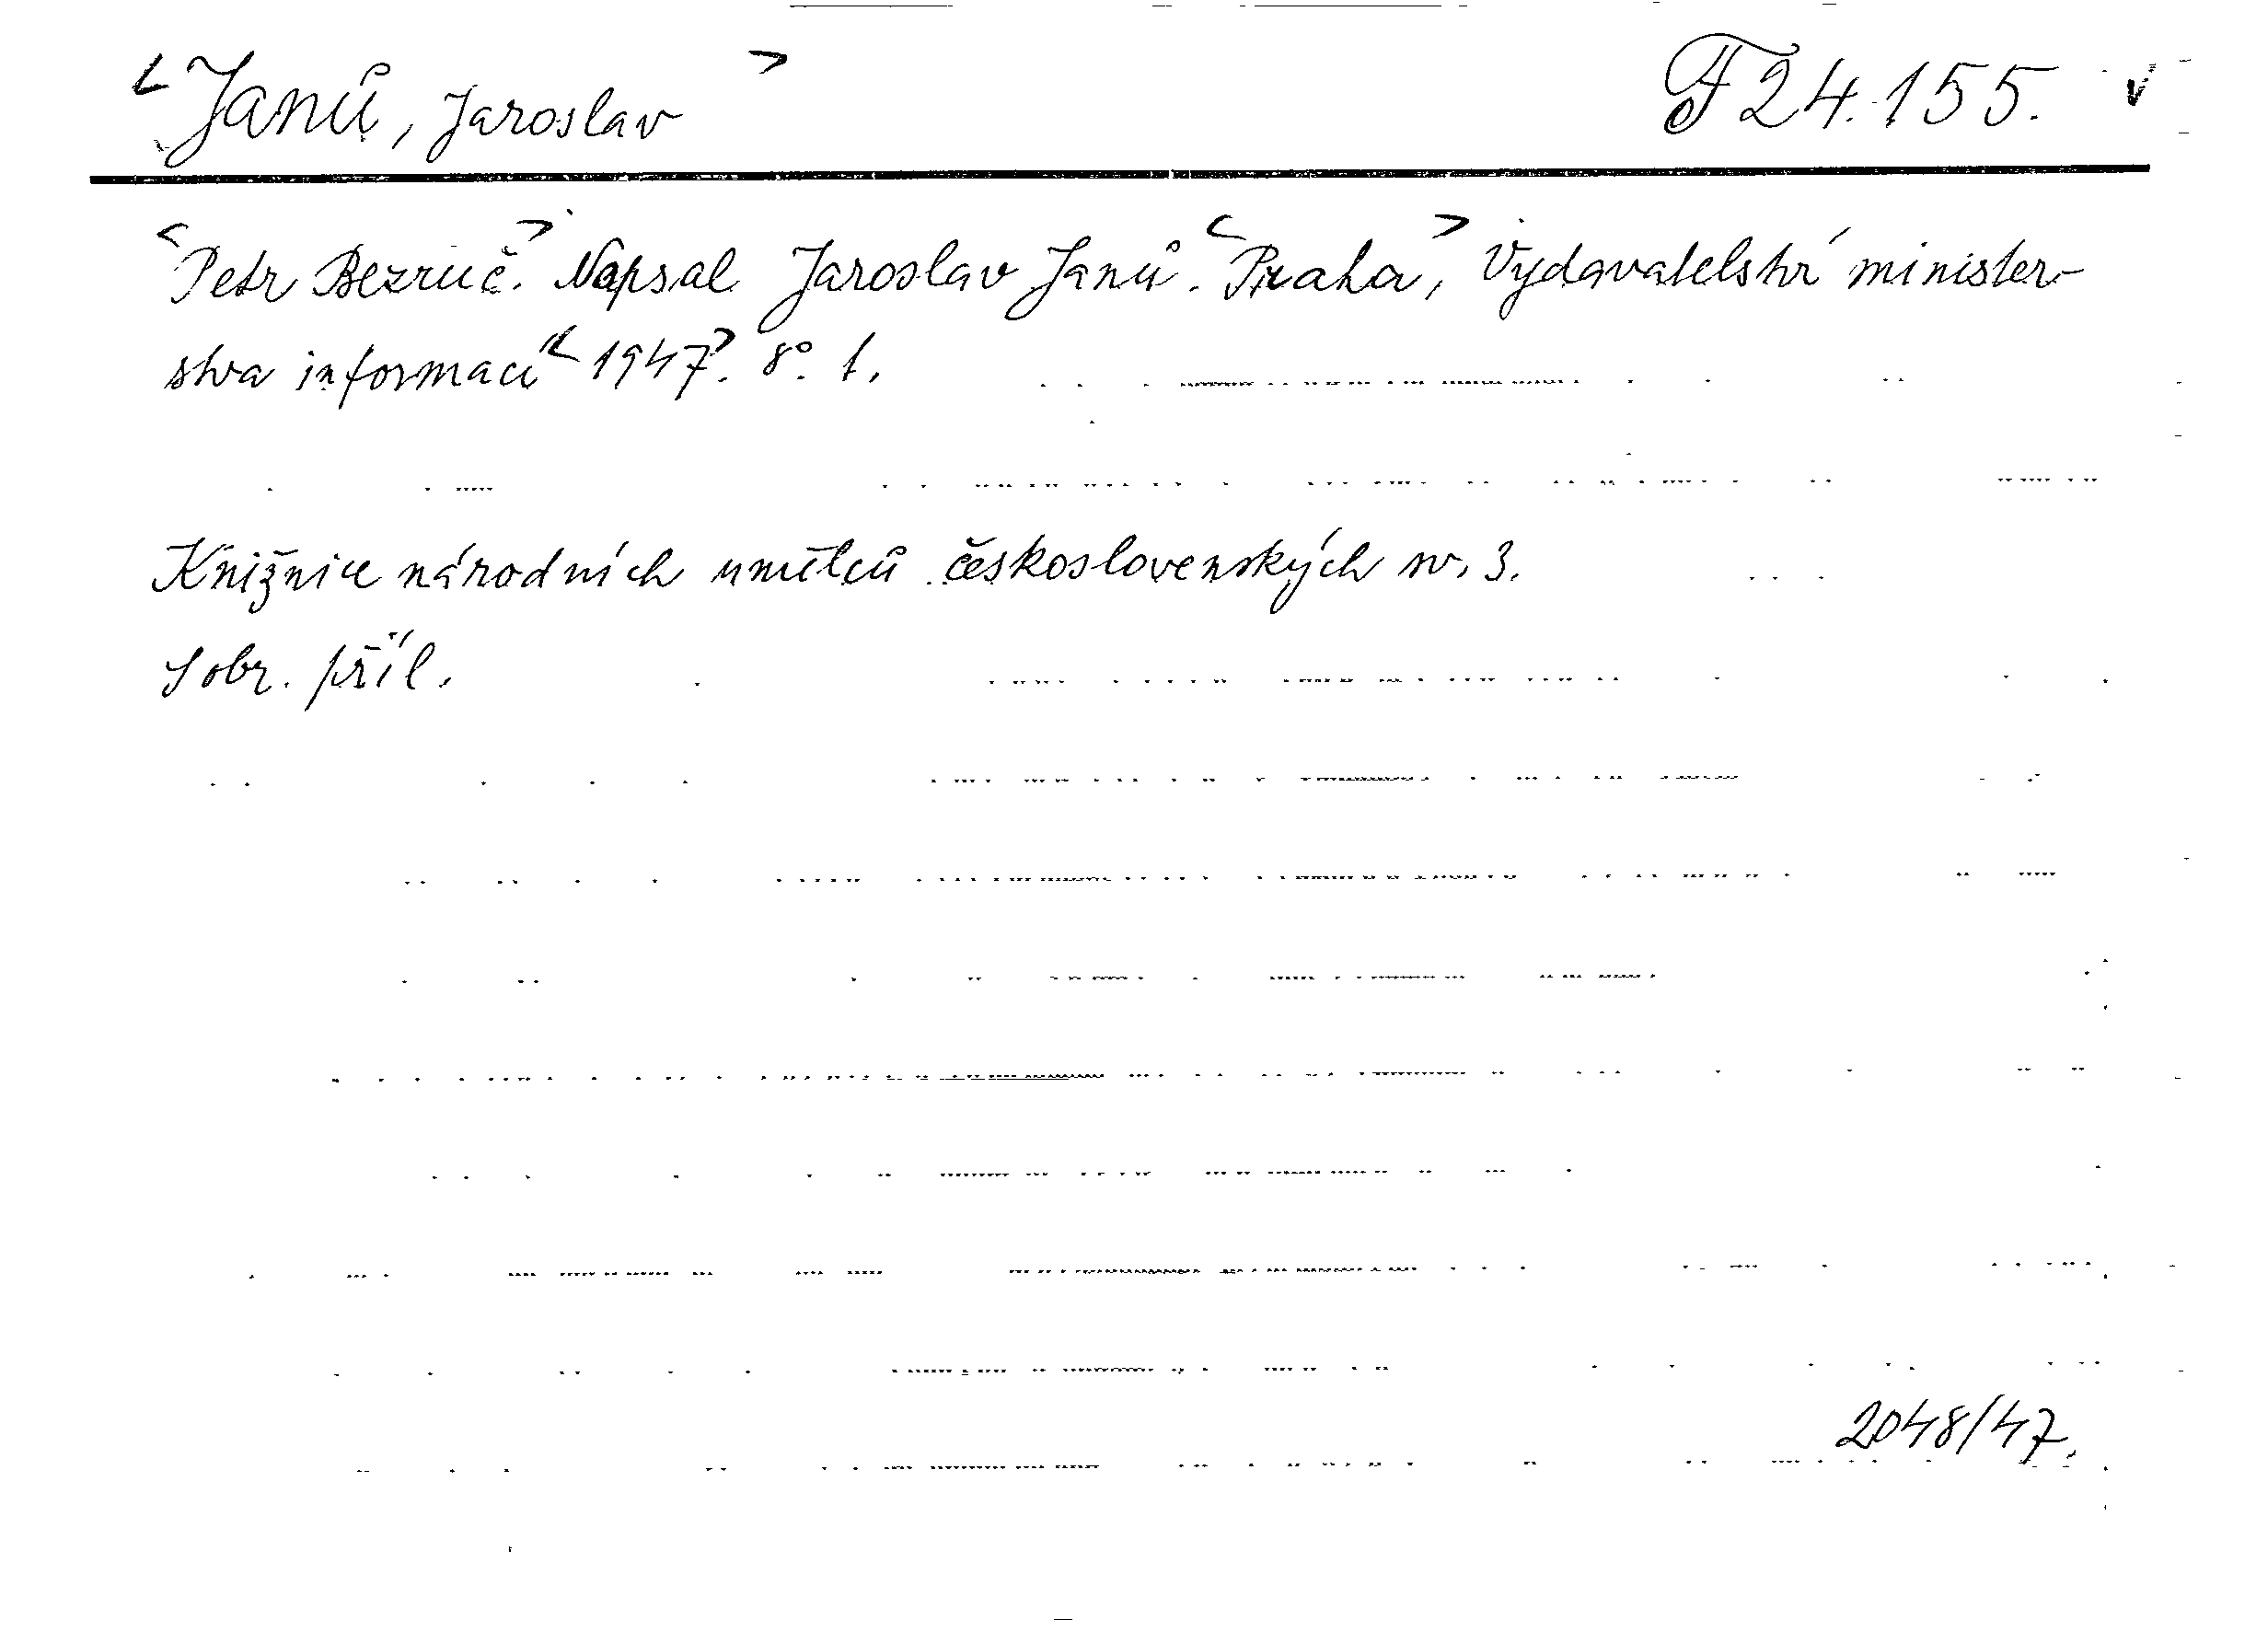 <Janů, Jaroslav> F 24.155. v
<Petr Bezruč.> Napsal Jaroslav Janů. <Praha,> Vydavatelství minister-
stva informací <1947>. 8°. 1.
Knižnice národních umělců československých sv. 3.
S obr. příl.
2048/47.